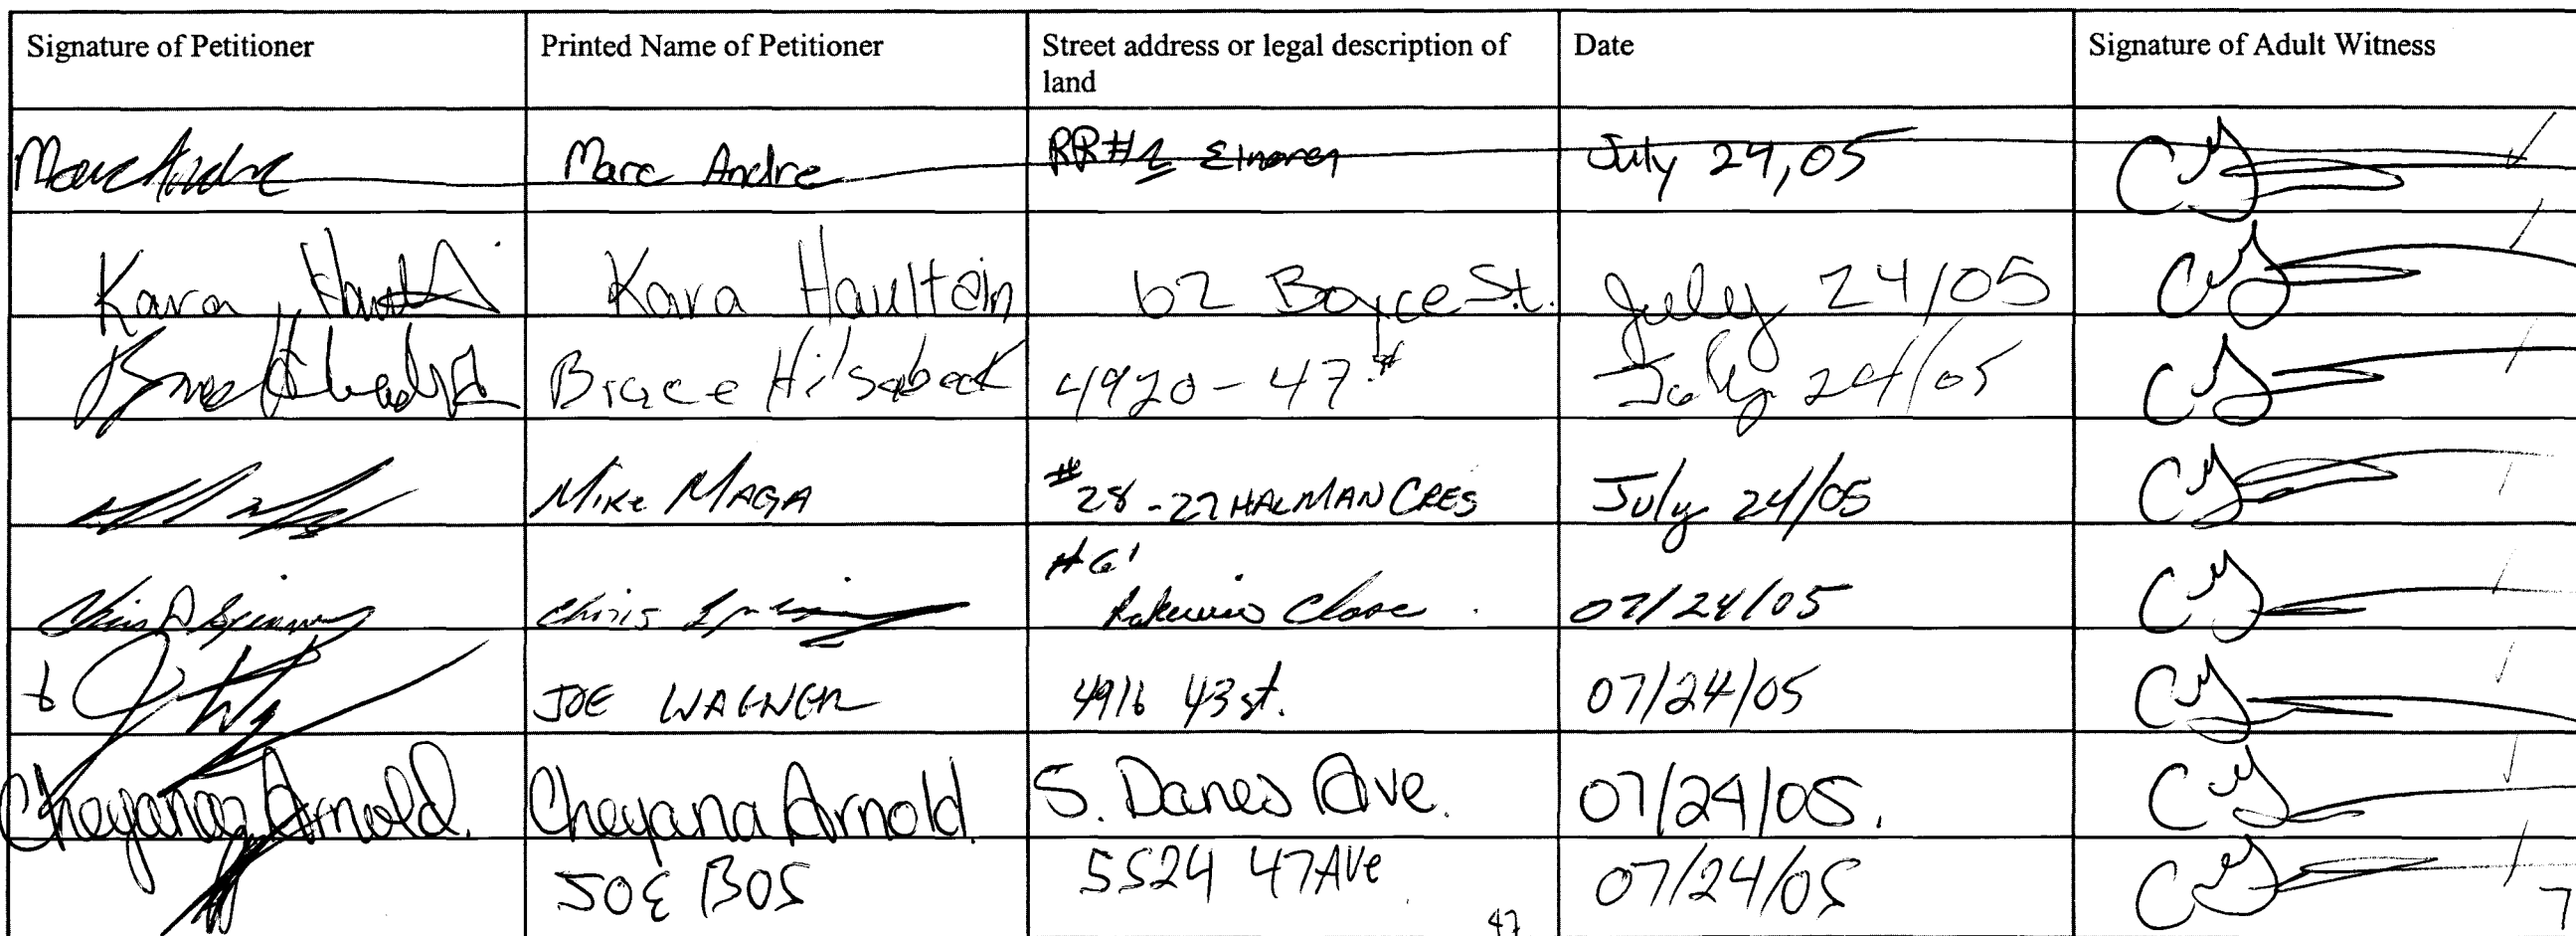 Signature of Petitioner Printed Name of Petitioner Street address or legal description of land Date Signature of Adult Witness
Marc Andre Marc Andre RR#2 July 24, 05
Kara Kara Haultain 62 Boyce St. July 24/05
Bruce Hilsabeck 4920-47 St July 24/05
Mike MAGA #28-27 HALMAN CRES July 24/05
#61
Chris Close 07/24/05
JOE WAGNER 4916 43 st. 07/24/05
Cheyana Arnold. Cheyana Arnold. 5. Danes Ave. 07/24/05.
JOE BOS 5524 47 AVe 07/24/05
47 7